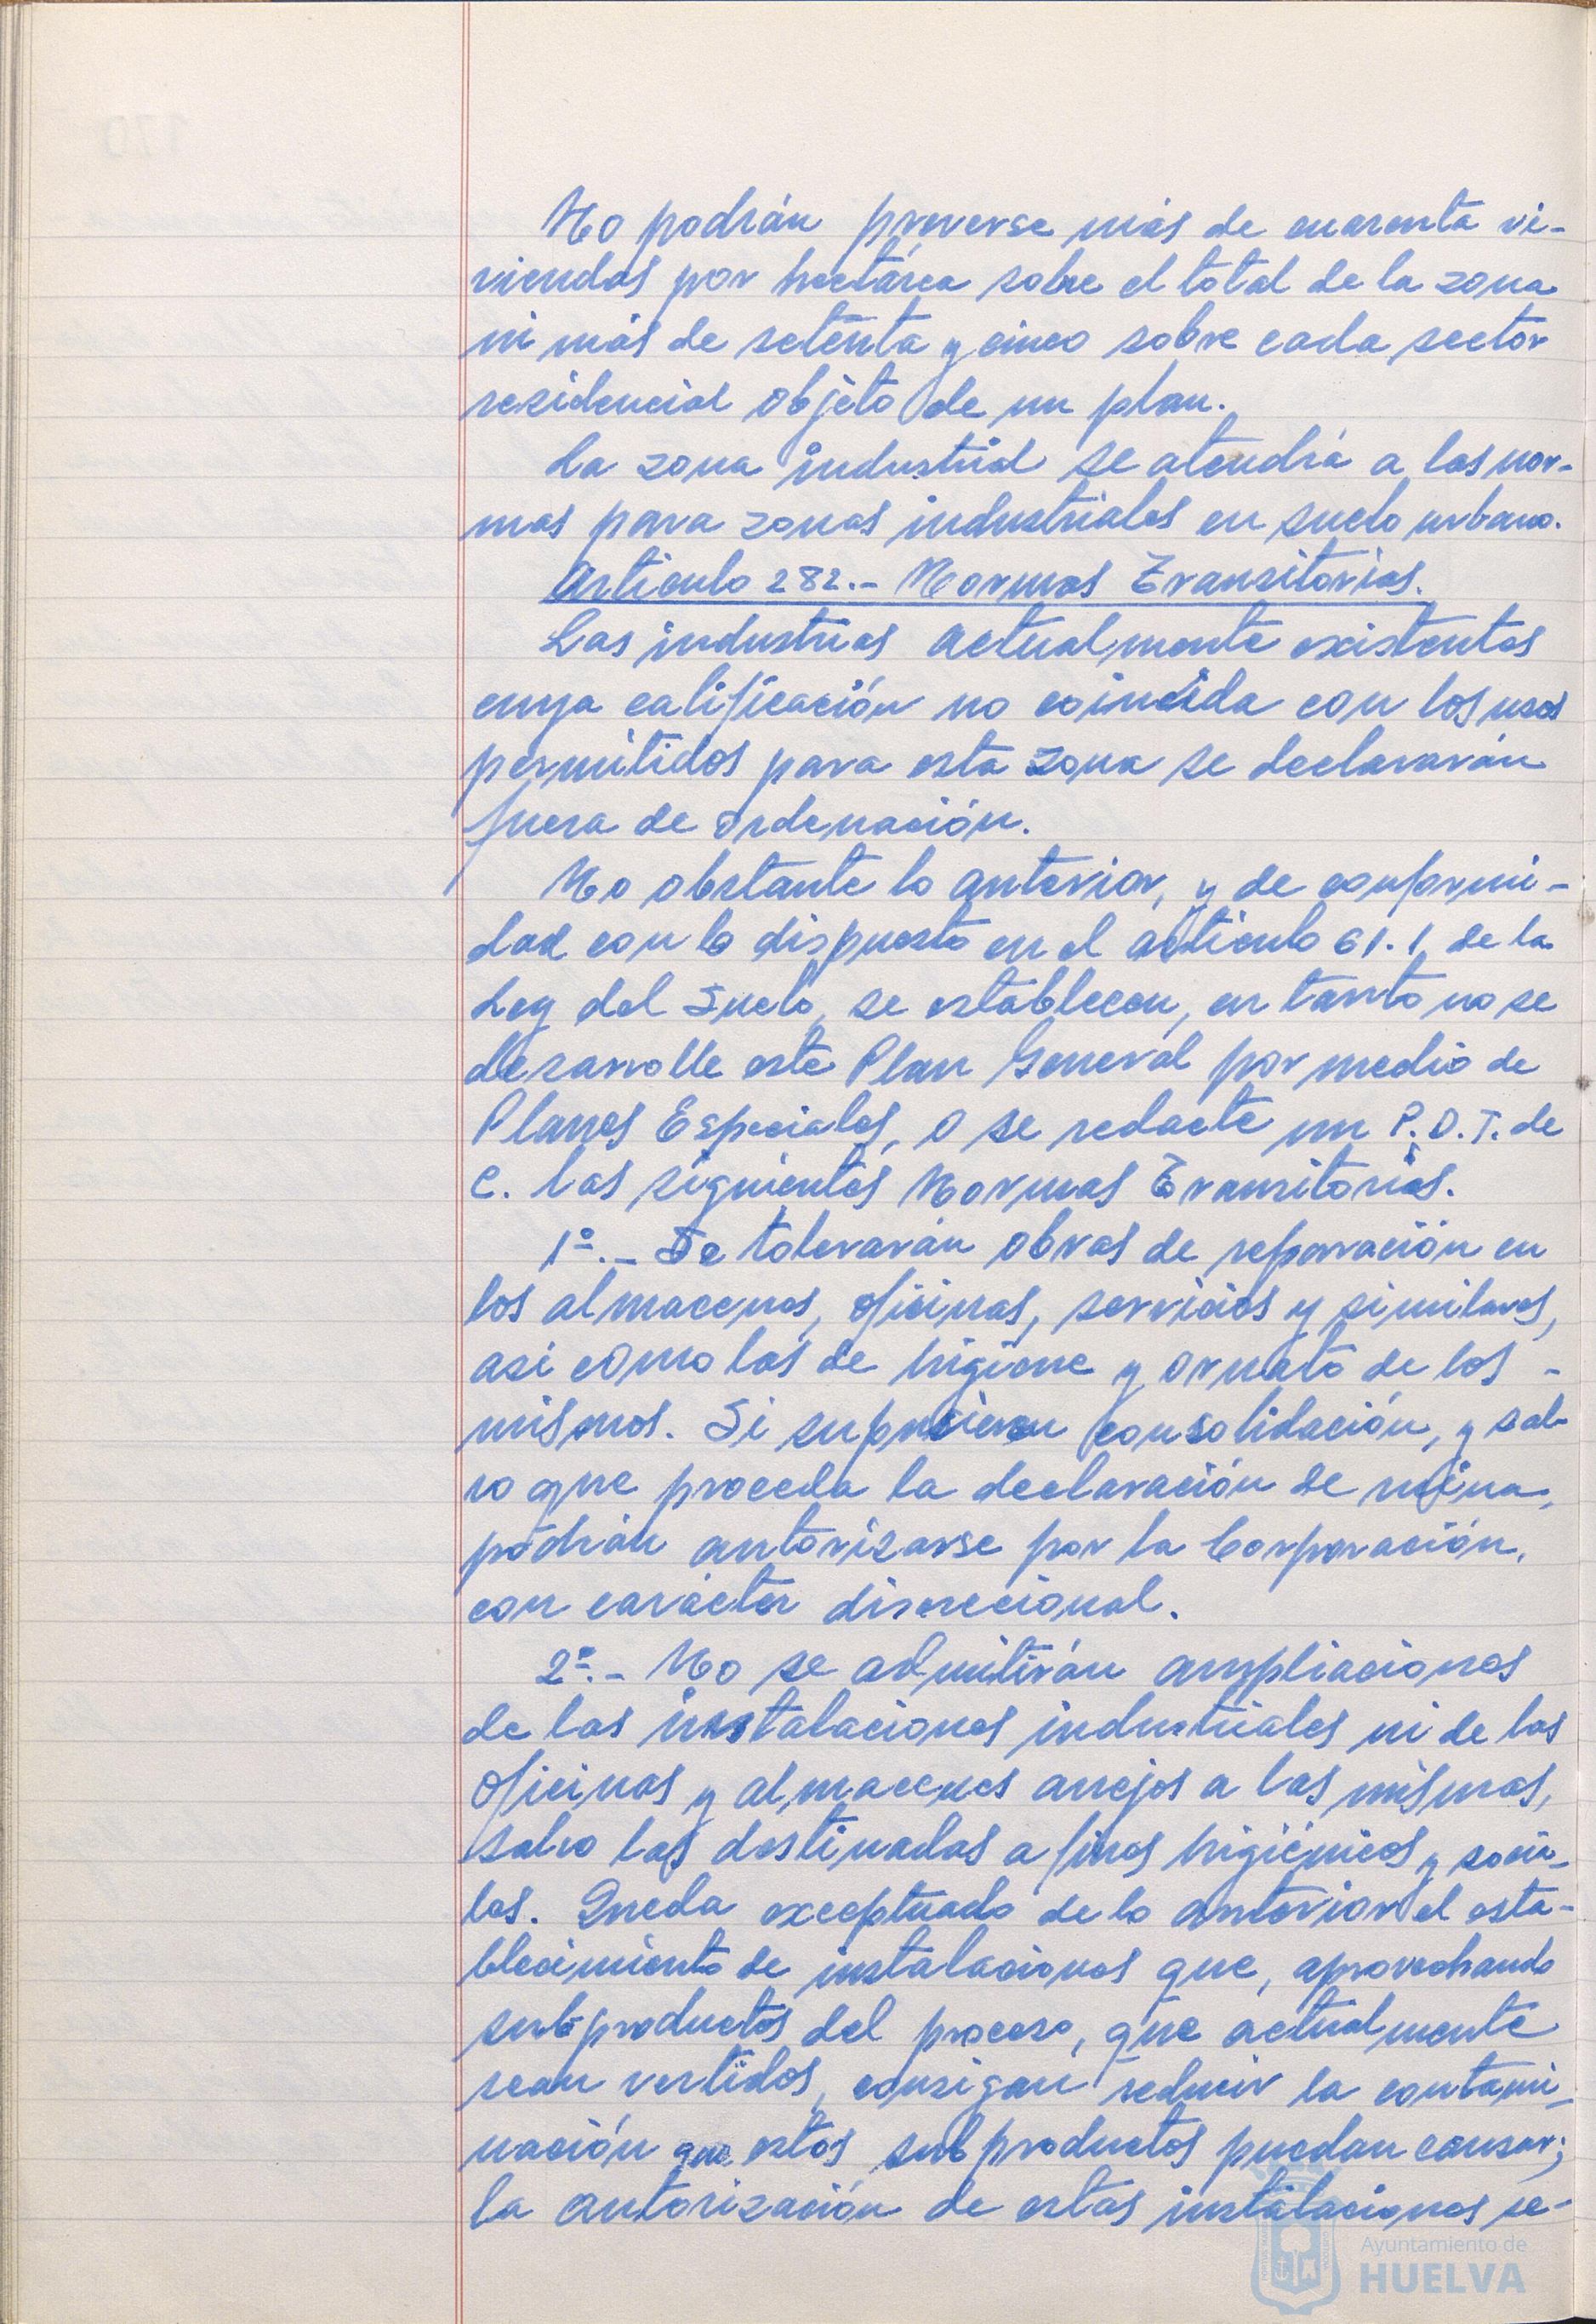 No podrán preverse más de cuarenta vi-
viendas por hectárea sobre el total de la zona
ni más de setenta y cinco sobre cada sector
residencial objeto de un plan.
La zona industrial se atendrá a las nor-
mas para zonas industriales en suelo urbano.
Artículo 282.- Normas Transitorias.
Las industrias actualmente existentes
cuya calificación no coincida con los usos
permitidos para esta zona se declararán
fuera de ordenación.
No obstante lo anterior, y de conformi-
dad con lo dispuesto en el artículo 61.1 de la
Ley del Suelo, se establecen, en tanto no se
desarrolle este Plan General por medio de
Planes Especiales, o se redacte un P.D.T. de
C. las siguientes Normas Transitorias.
1º.- Se tolerarán obras de reparación en
los almacenes, oficinas, servicios y similares,
así como las de higiene y ornato de los -
mismos. Si supusieran consolidación, y sal-
vo que proceda la declaración de ruina,
podrán autorizarse por la Corporación,
con carácter discrecional.
2º.- No se admitirán ampliaciones
de las instalaciones industriales ni de las
oficinas y almacenes anejos a las mismas,
salvo las destinadas a fines higiénicos y socia-
les. Queda exceptuado de lo anterior el esta-
blecimiento de instalaciones que, aprovechando
subproductos del proceso, que actualmente
sean vertidos, consigan reducir la contami-
nación que estos subproductos puedan causar;
la autorización de estas instalaciones se-
Ayuntamiento de
HUELVA